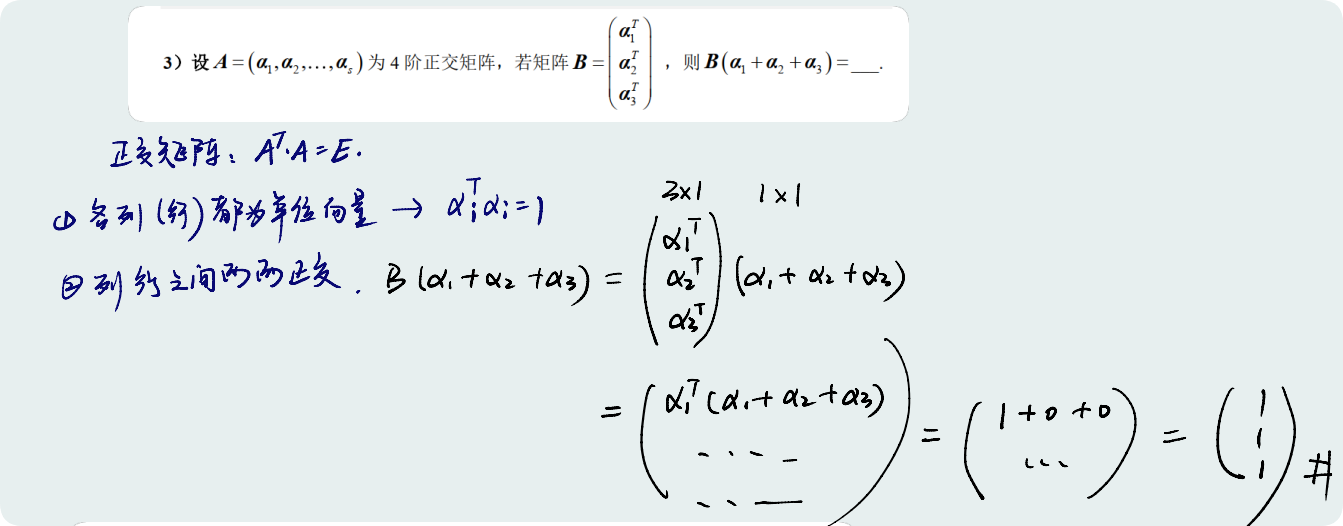 3）设 A = (α₁, α₂, …, αₛ) 为 4 阶正交矩阵，若矩阵 B = (α₁ᵀ α₂ᵀ α₃ᵀ)，则 B(α₁ + α₂ + α₃) = ___.
正交矩阵：Aᵀ·A = E.
① 各列(行)都为单位向量 → αᵢᵀαᵢ = 1
3×1 1×1
② 列行之间两两正交. B(α₁ + α₂ + α₃) = (α₁ᵀ α₂ᵀ α₃ᵀ) (α₁ + α₂ + α₃)
= (α₁ᵀ(α₁ + α₂ + α₃) ···· ···) = (1 + 0 + 0 ···) = (1 1 1) #